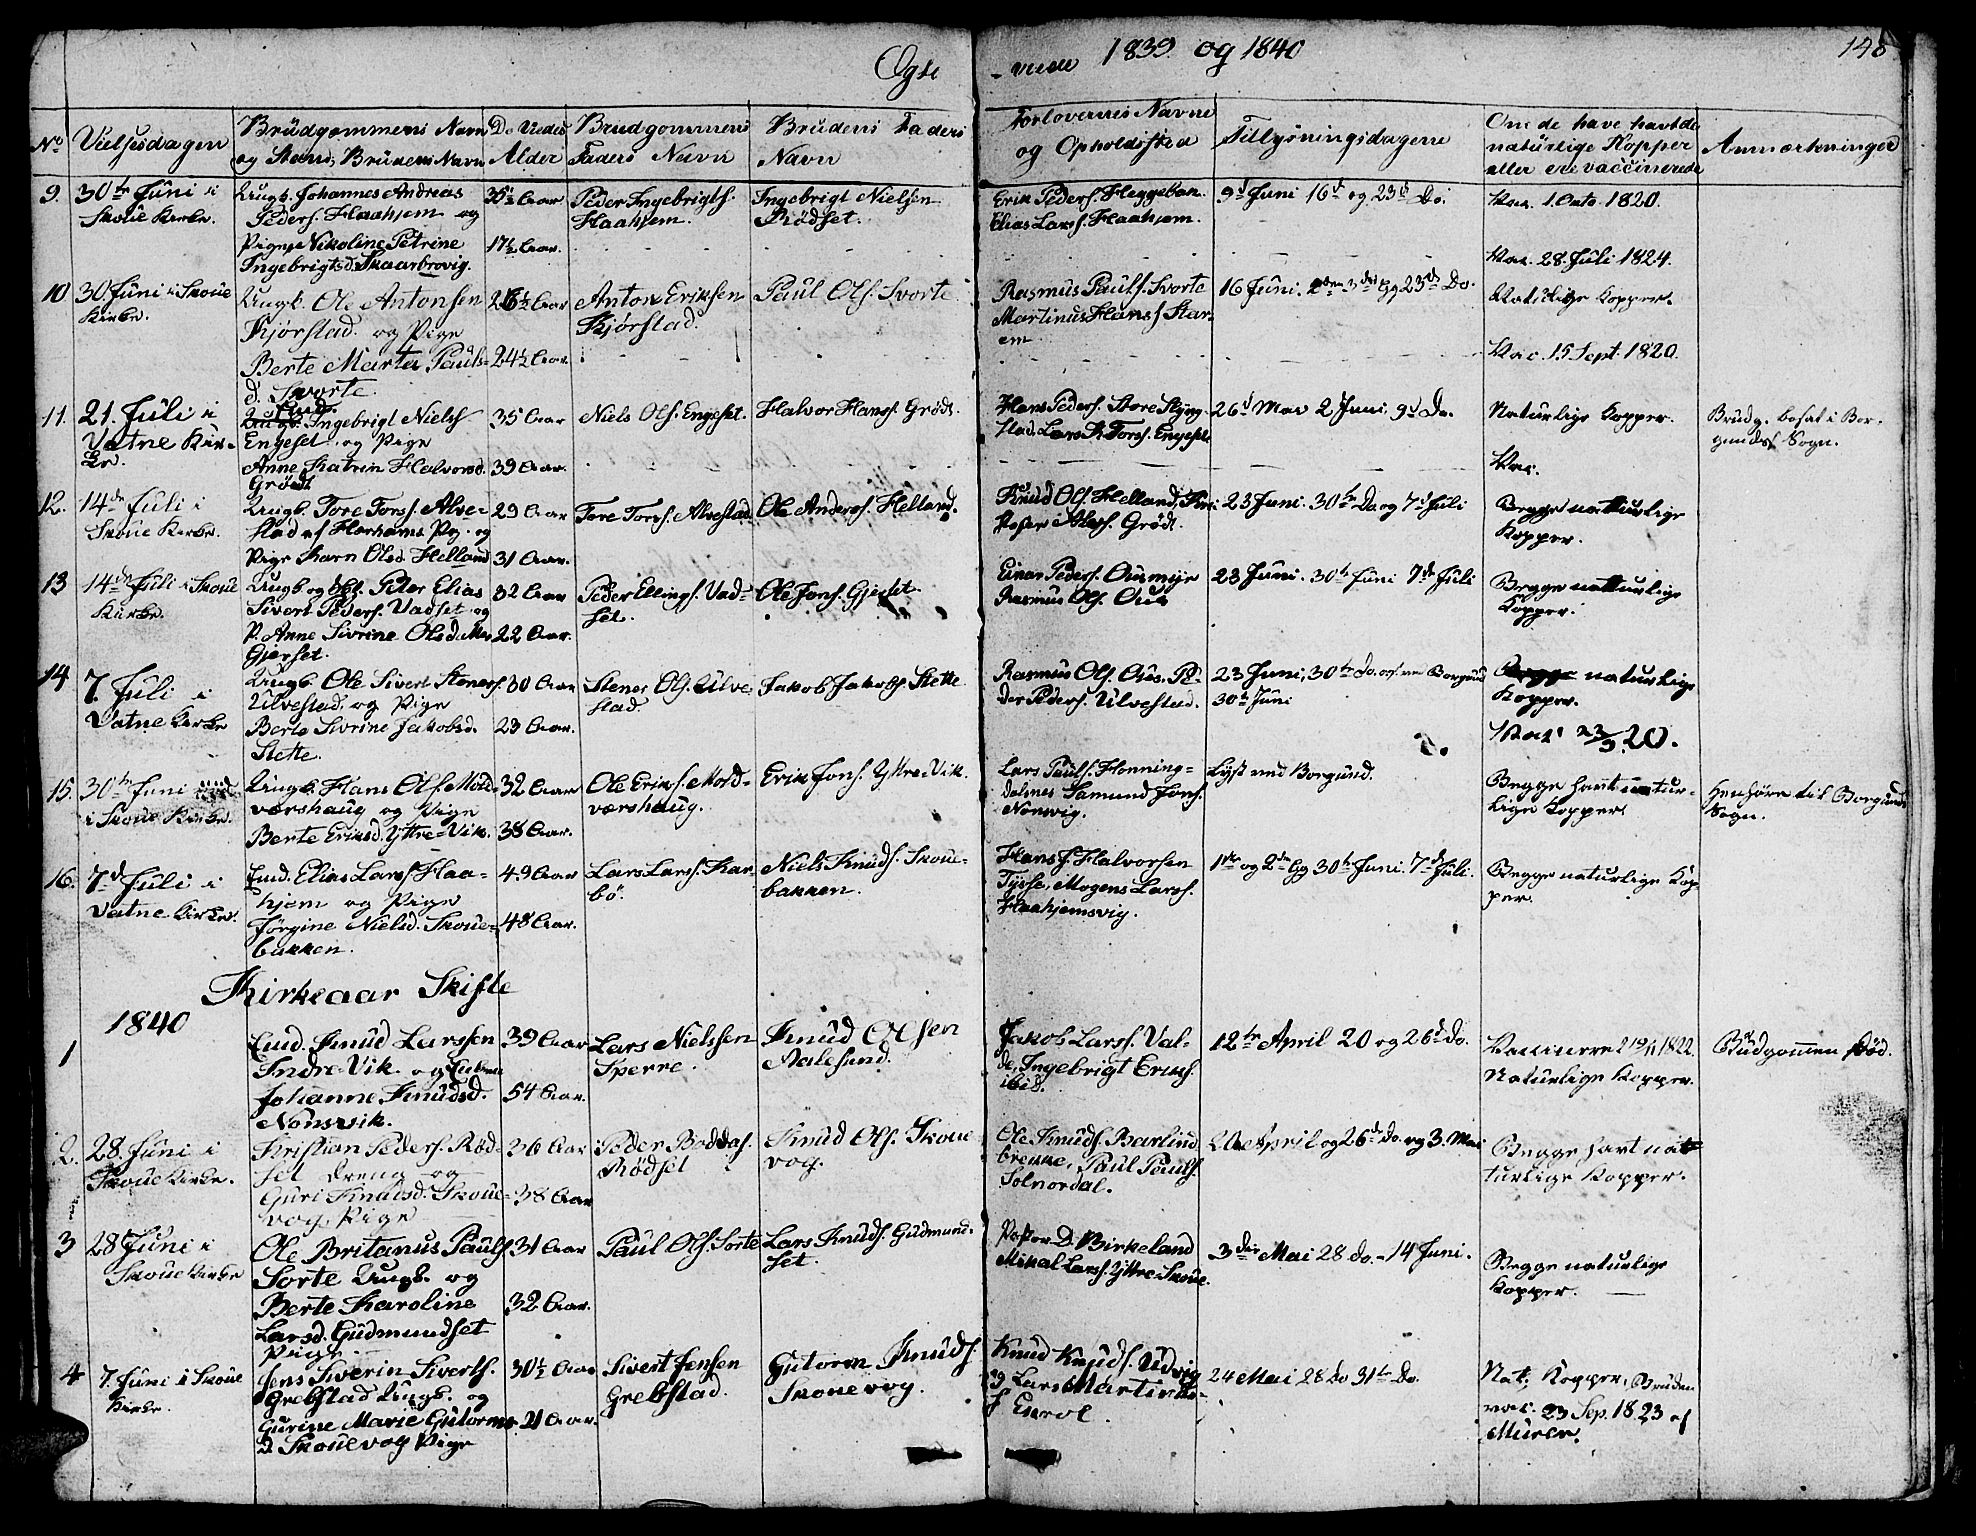 Ogte - viede 1839 og 1840 148
No
Vielsesdagen
Brudgommens Navn
og Stand, Brudens Navn
De Viedes
Alder
Brudgommens
Faders Navn
Brudens Faders
Navn
Forlovernes Navne
og Opholdssted
Tillysningsdagene
Om de have havt de
naturlige Kopper
eller ere vaccinerede
Anmærkninger
9.
30te Juni i
Skoue Kirke.
Ungk. Johannes Andreas
Peders. Haahjem og
Pigen Nikoline Petrine
Ingebrigtsd. Skaarbrovig.
35½ Aar
17½ Aar.
Peder Ingebrigts.
Haahjem.
Ingebrigt Nielsen
Rødset.
Erik Peders. Heggebak.
Elias Lars. Haahjem.
9d Juni 16d og 23d Do.
Vac. 1 Octo. 1820.
Vac. 28 Juli 1824.
10
30 Juni i Skoue
Kirke.
Ungk. Ole Antonsen
Kjørstad og Pige
Berte Marta Pauls-
d. Svorte.
26½ Aar
24½ Aar.
Anton Eriksen
Kjørstad.
Paul Ols. Svorte
Rasmus Pauls. Svorte
Martinus Hans. Stor-
em
16 Juni. 2den 3die Gg 23d Do.
Naturlige Kopper.
Vac. 15 Sept. 1820.
11.
21. Juli i
Vatne Kir-
ke.
Enk.
Ungk. Ingebrigt Niels.
Engeset og Pige
Anne Katrin Halvorsd.
Grødt
35 Aar
39 Aar.
Niels Ols. Engeset.
Halvor Hans. Grødt.
Hans Peders. Store
stad. Lars K. Tors. Engeset.
26d Mai 2 Juni. 9d Do.
Naturlige Kopper.
Vac.
Brudg. bosat i Bor-
gunds Sogn.
12.
14de Juli i
Skoue Kirke.
Ungk. Tore Tors. Alve-
stad af Harhams Pg. og
Pige Karn Olsd. Helland
29 Aar
31 Aar.
Tore Tors. Alvestad.
Ole Anders. Helland.
Knud Ols. Helland,
Grødt.
23 Juni. 30te Do og 7d Juli
Begge naturlige
Kopper.
13
14de Juli i Skoue
Kirke.
Ungk og Peter Elias
Sivert Peders. Vadset og
P. Anne Sivrine Olsd.
Gjerset.
32 Aar
22 Aar.
Peder Ellings. Vad-
set.
Ole Jons. Gjerset.
Einar Peders. Ousmyr
Rasmus Ols. Ous
23 Juni. 30te Juni 7de Juli
Begge naturlige
Kopper.
14
7. Juli i
Vatne Kirke
Ungk. Ole Sivert Steners.
Ulvestad og Pige
Berte Sivrine Jakobsd.
Slette.
30 Aar
23 Aar.
Stener Ols. Ulve-
stad.
Jakob Jakobs. Slette
Rasmus Ols. Ous, Pe-
der Peders. Ulvestad.
23 Juni, 30te Do. og ved Borgund
30te Juni
Begge naturlige
Kopper.
Vac. 23/9 20.
15.
30te Juni
i Skoue Kirke.
Ungk. Hans Ols. Mold-
værshaug og Pige
Berte Eriksd. Yttre-Vik.
32 Aar
38 Aar.
Ole Eriks. Mold-
værshaug.
Erik Jons. Yttre-Vik.
Lars Pauls. Honning-
dalsnes Samund Jons.
Nonsvig.
Lyst ved Borgund.
Begge havt natur-
lige Kopper.
Henhøre til Borgunds
Sogn.
16.
7d Juli i
Vatne Kirke.
Emd. Elias Lars. Haa-
hjem og Pige
Jørgine Nielsd. Skoue-
bakken.
49 Aar
48 Aar.
Lars Lars. Kar-
bø.
Niels Knuds. Skoue-
bakken.
Hans J. Halvorsen
Tysse, Mogens Lars.
Haahjemsvig.
1ste og 2den Gg 30te Juni. 7d Juli.
Begge naturlige Kop-
per.
Kirkeaar Skifte
1840
1
Emd. Knud Larssen
Indre Vik og Enken
Johanne Knudsd.
Nonsvik.
39 Aar
54 Aar.
Lars Nielssen
Sperre.
Knud Olsen
Aalesund.
Jakob Lars. Val-
de, Ingebrigt Eriks.
ibid.
12te April 20 og 26d Do.
Vaccineret 19/11 1822.
Naturlige Kopper.
Brudgommen død.
2.
28. Juni i
Skoue Kirke.
Kristian Peders. Rød-
set Dreng og
Guri Knudsd. Skoue-
vog, Pige
36 Aar
38 Aar
Peder
Rødset
Knud Ols. Skoue-
vog.
Ole Knuds. Barlind-
brekke, Paul Pauls.
Solnørdal.
20de April og 26de Do. og 3. Mai
Begge havt na-
turlige Kopper.
3
28 Juni i
Skoue Kirke
Ole Britanus Pauls.
Sorte Ungk. og
Berte Karoline
Larsd. Gudmundset
Pige.
31 Aar
32 Aar.
Paul Ols. Sorte
Lars Knuds. Gudmund-
set.
Peder D. Birkeland
Mikal Lars. Yttre Skoue.
3die Mai 28 do - 14 Juni.
Begge naturlige
Kopper.
4
7. Juni i Skoue
Kirke.
Jens Siverin Siverts.
Grebstad Ungk. og
Gurine Marie Gutorms-
d. Skouevog Pige
30½ Aar
21 Aar.
Sivert Jensen
Grebstad.
Gutorm Knuds.
Skouevog.
Knud Knuds. Udvig
og Lars Martinu-
s Emvol.
24 Mai 28 do 31te Do
Nat. Kopper, Bruden
vac. 23 Sep. 1823 af
Murer.